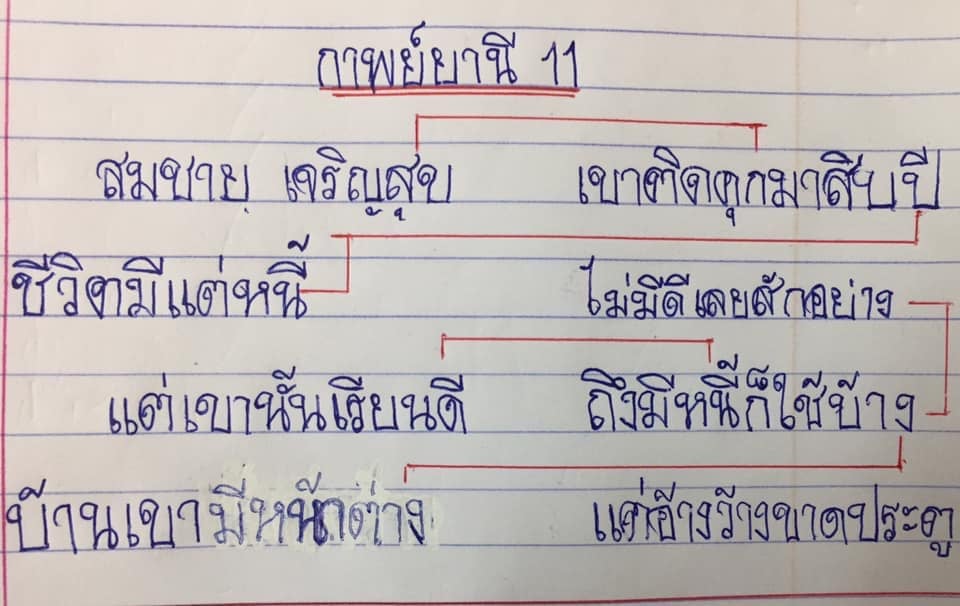 กาพย์ยานี 11
สมชาย เจริญสุข เขาติดคุกมาสิบปี
ชีวิตมีแต่หนี้ ไม่มีดีเลยสักอย่าง
แต่เขานั้นเรียนดี ถึงมีหนี้ก็ใช้บ้าง
บ้านเขามีหน้าต่าง แต่อ้างว้างขาดประตู